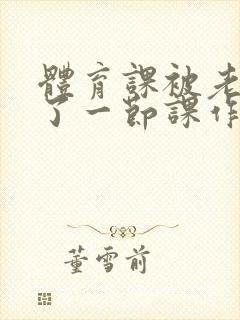 體育課被老
了一節課作
董雪前